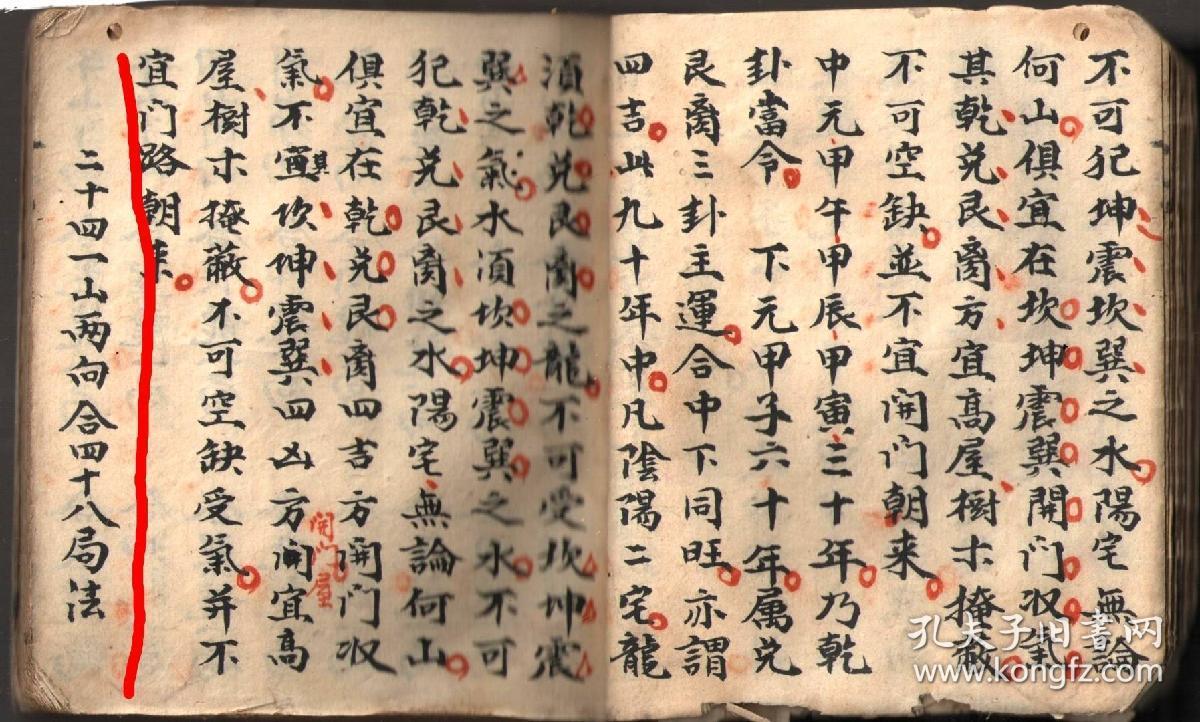 不可犯坤震坎巽之水陽宅無論
何山俱宜在坎坤震巽開门収氣
其乾兑艮离方宜髙屋樹木掩蔽
不可空缺並不宜開门朝来
中元甲午甲辰甲寅三十年乃乾
卦當令 下元甲子六十年属兑
艮离三卦主運合中下同旺亦謂
四吉此九十年中凡陰陽二宅龍
須乾兑艮离之龍不可受坎坤震
巽之氣水須坎坤震巽之水不可
犯乾兑艮离之水陽宅無論何山
俱宜在乾兑艮离四吉方開门収
氣不宜其坎坤震巽四凶方開宜髙
開门屋
屋樹木掩蔽不可空缺受氣并不
宜门路朝来
二十四一山两向合四十八局法
孔夫子旧书网
www.kongfz.com